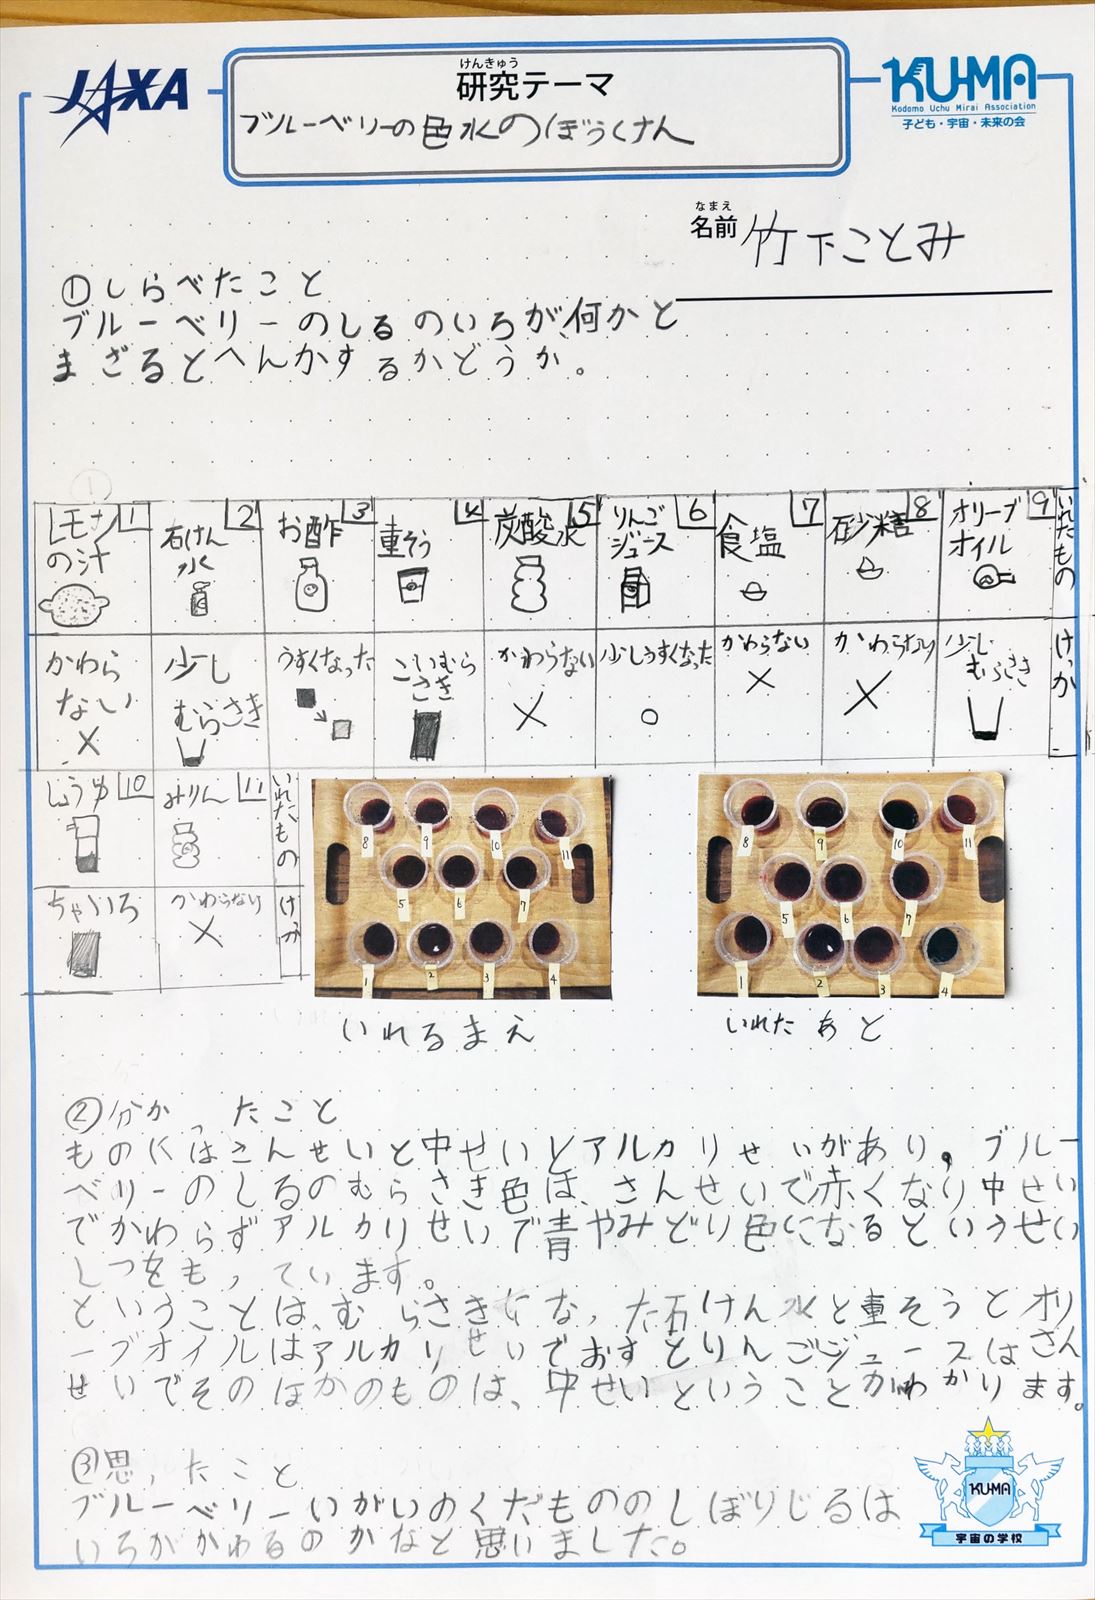 JAXA
けんきゅう
研究テーマ
ブルーベリーの色水のぼうけん
KU-MA
Kodomo Uchu Mirai Association
子ども・宇宙・未来の会
なまえ
名前 竹下ことみ
①しらべたこと
ブルーベリーのしるのいろが、何かと
まざるとへんかするかどうか。
①
レモンの汁 1
石けん水 2
お酢 3
重そう 4
炭酸水 5
りんごジュース 6
食塩 7
砂糖 8
オリーブオイル 9
いれたもの
かわらない ×
少しむらさき
うすくなった
こいむらさき
かわらない ×
少しうすくなった ○
かわらない ×
かわらない ×
少しむらさき
けっか
しょうゆ 10
みりん 11
いれたもの
ちゃいろ
かわらない ×
けっか
8 9 10 11
5 6 7
1 2 3 4
いれるまえ
8 9 10 11
5 6 7
1 2 3 4
いれたあと
②分かったこと
ものにはさんせいと中せいとアルカリせいがあり、ブルー
ベリーのしるのむらさき色は、さんせいで赤くなり中せい
でかわらずアルカリせいで青やみどり色になるというせい
しつをもっています。
ということは、むらさきになった石けん水と重そうとオリ
ーブオイルはアルカリせいでおすとりんごジュースはさん
せいでそのほかのものは、中せいということがわかります。
③思ったこと
ブルーベリーいがいのくだもののしぼりじるは
いろがかわるのかなと思いました。
KU-MA
宇宙の学校